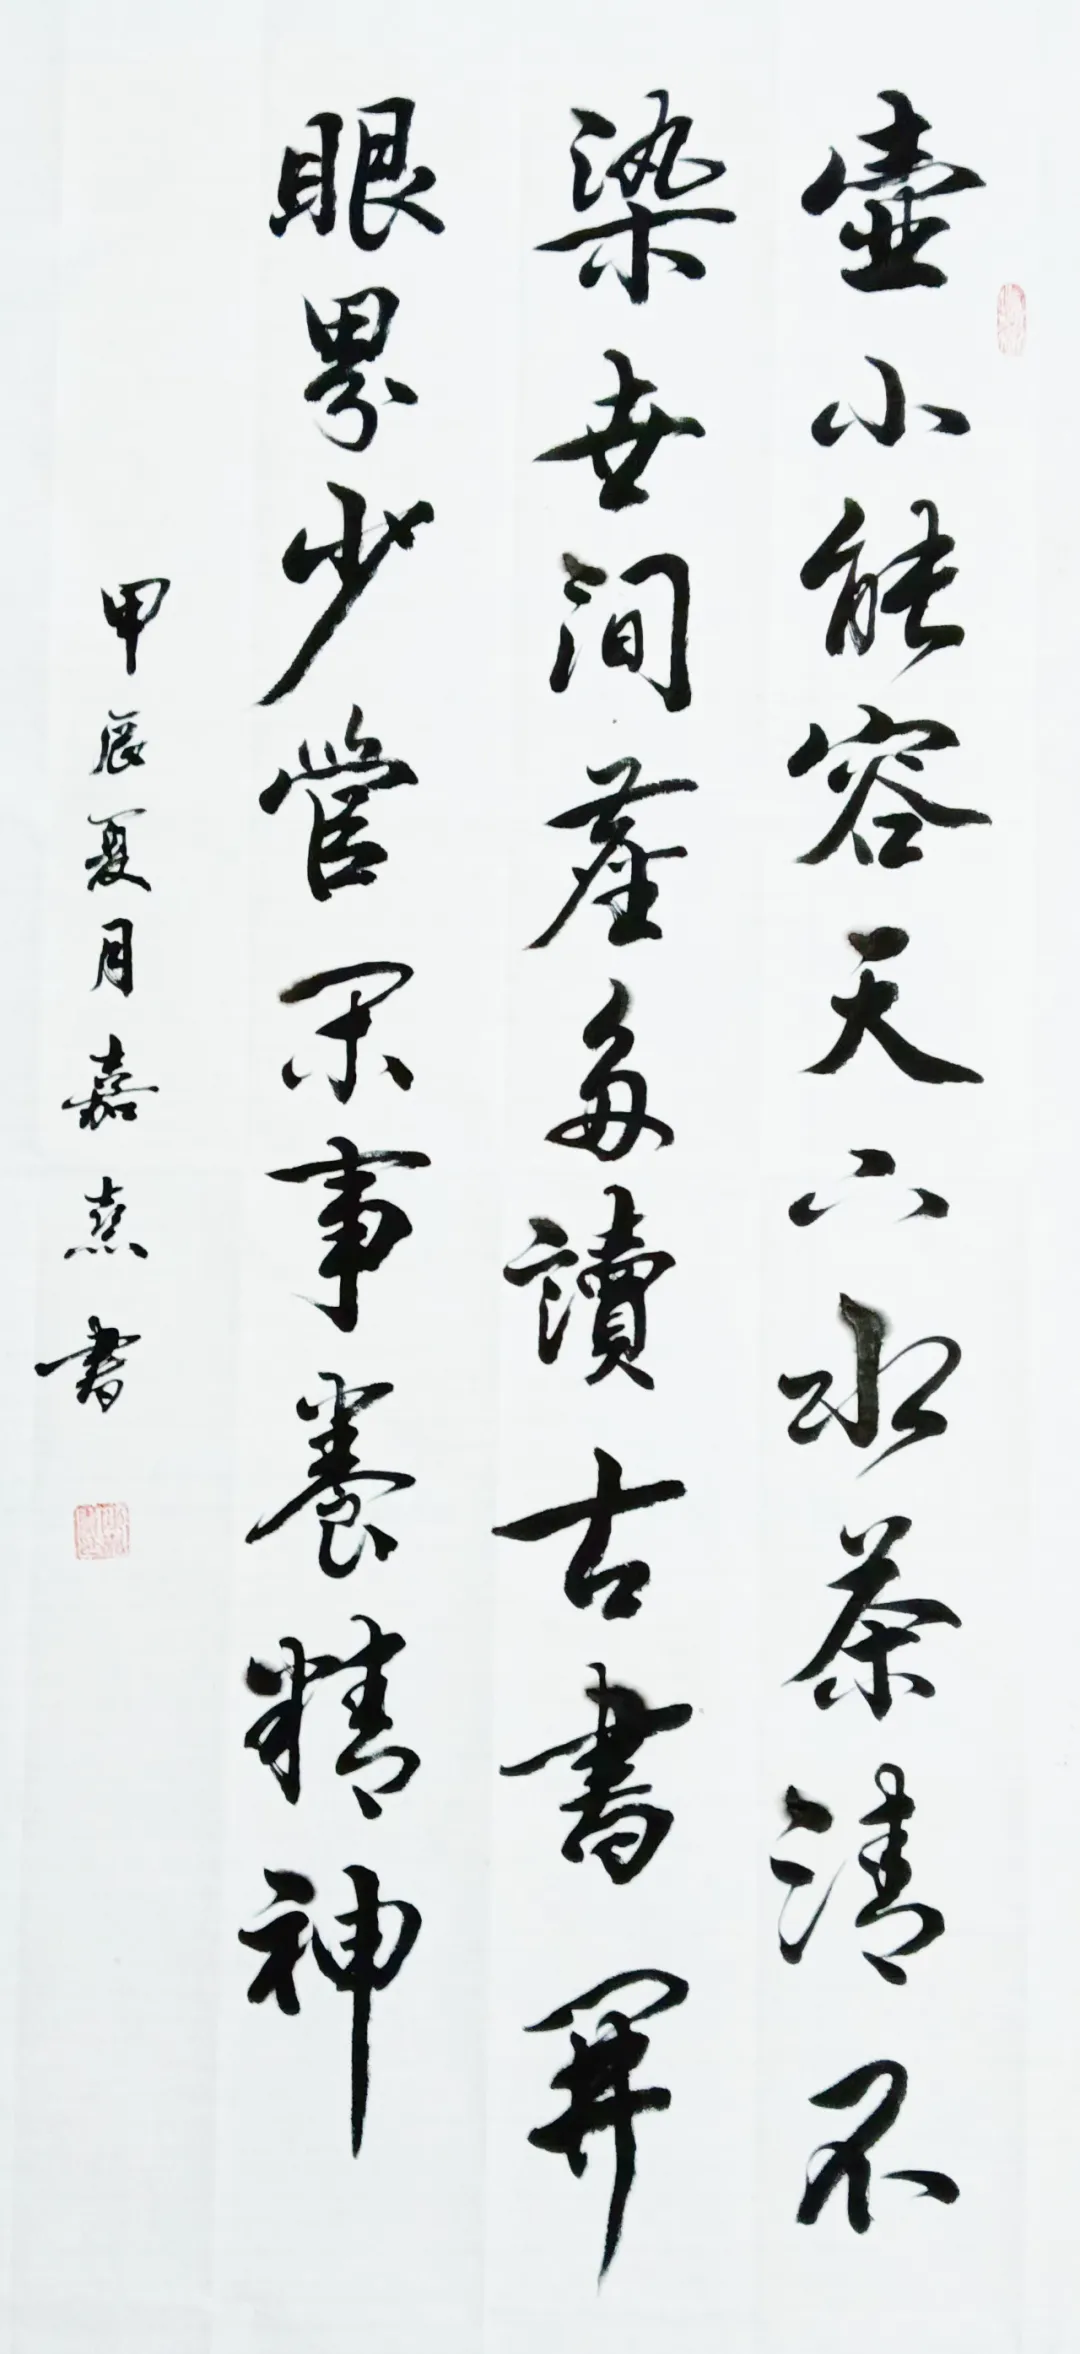 壶小能容天下水茶清不
染世间尘多讀古書開
眼界少管闲事養精神
甲辰夏月嘉熹书